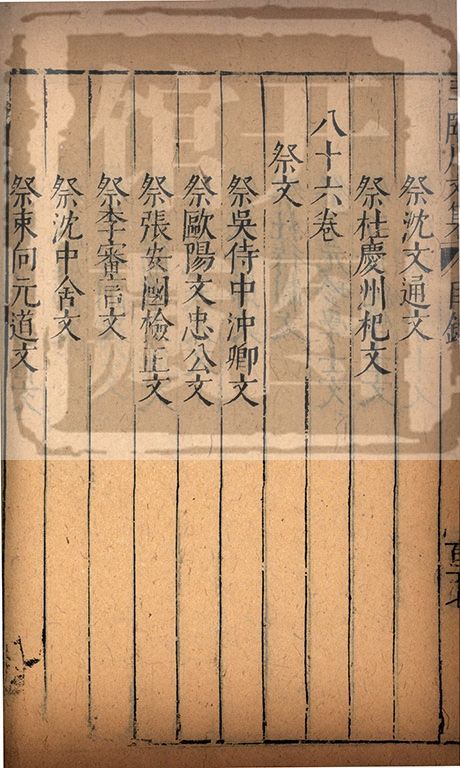 祭沈文通文
祭杜慶州杞文
八十六卷
祭文
祭吳侍中沖卿文
祭歐陽文忠公文
祭張安國檢正文
祭李審言文
祭沈中舍文
祭束向元道文